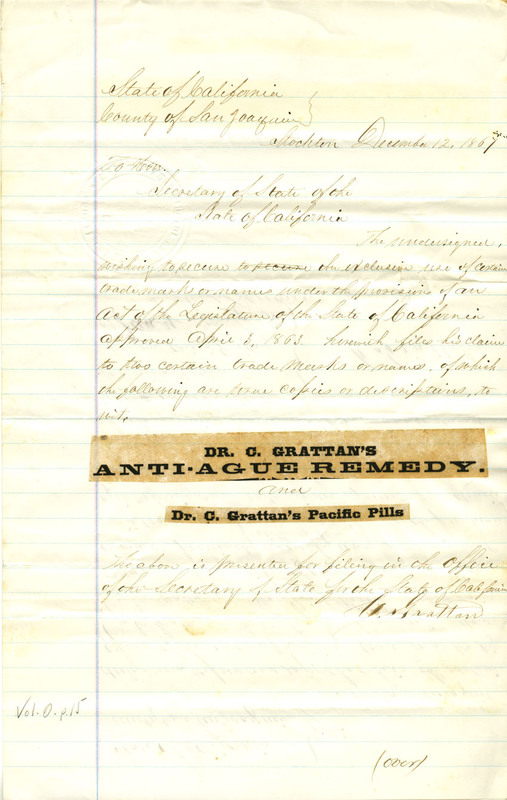 State of California
County of San Joaquin
Stockton December 12, 1867
To Hon.
Secretary of State of the
State of California
The undersigned,
wishing to secure to secure the exclusive use of certain
trade marks or names under the provisions of an
Act of the Legislature of the State of California
approved April 3, 1863. herewith files his claim
to two certain trade marks or names. of which
the following are true copies or descriptions, to
wit.
DR. C. GRATTAN'S
ANTI-AGUE REMEDY.
and
Dr. C. Grattan's Pacific Pills
The above is presented for filing in the Office
of the Secretary of State for the State of California
C. Grattan
Vol. 0. p. 15
(over)